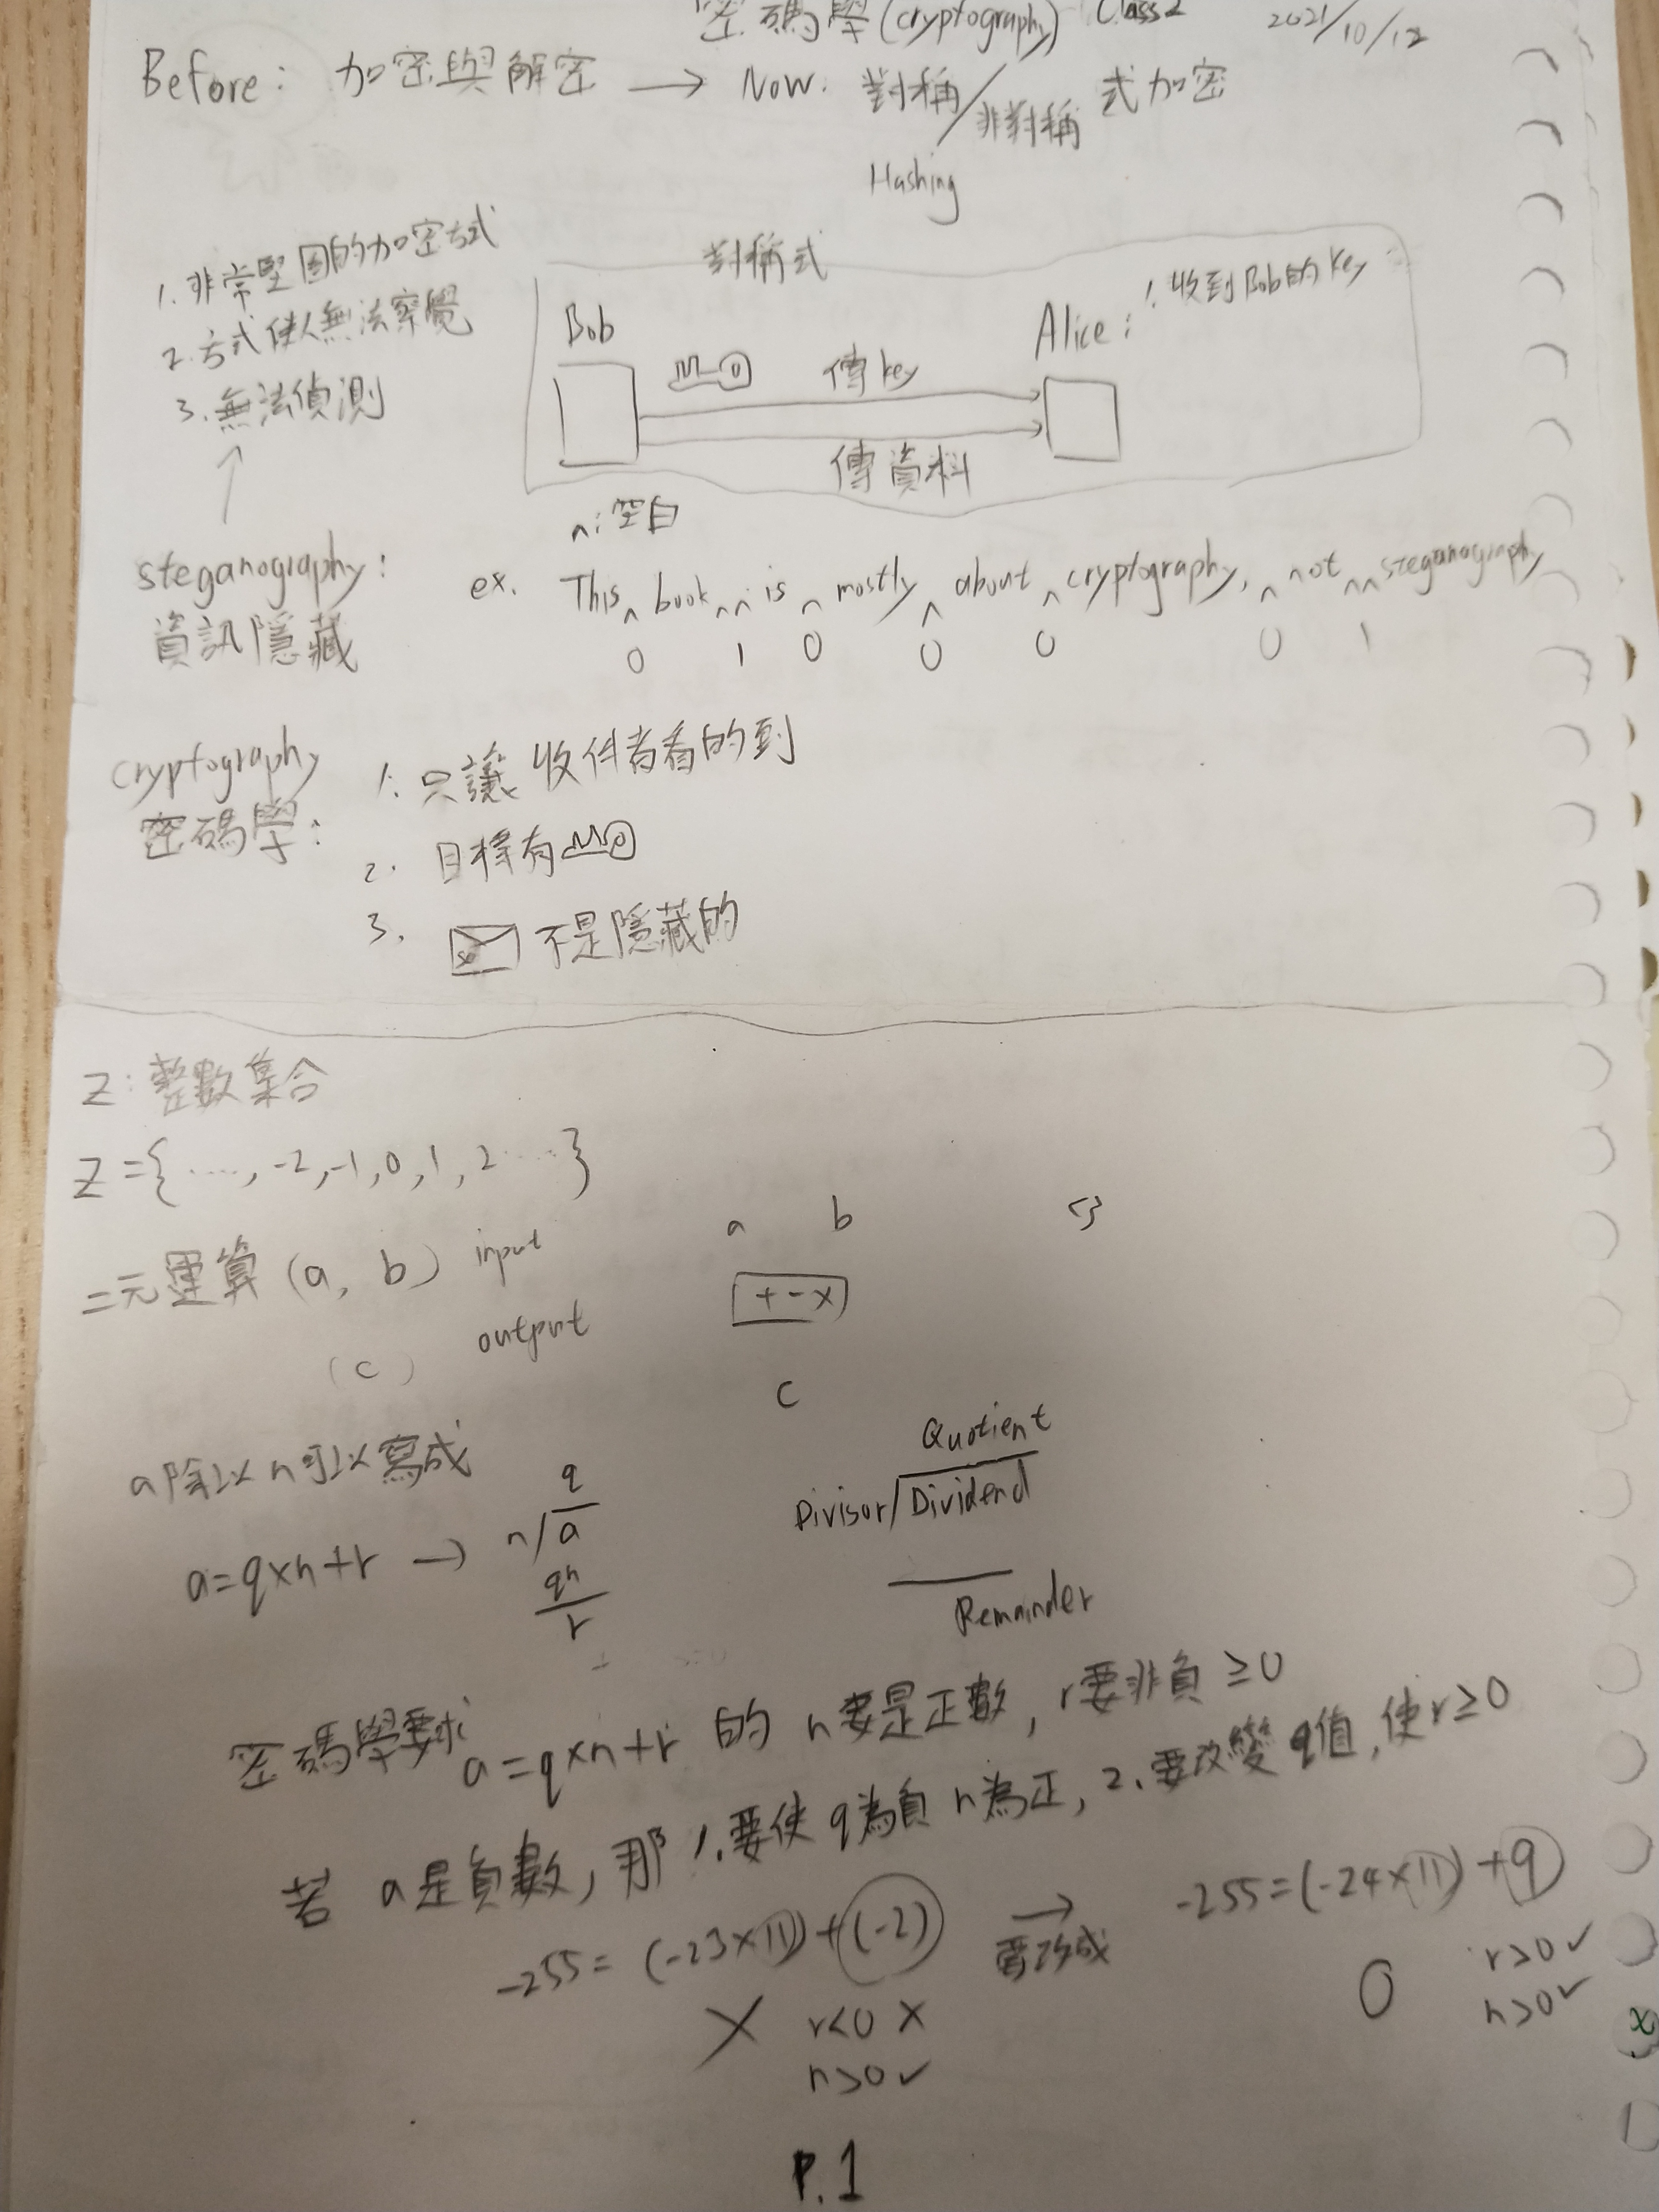 密碼學(cryptography) Class2 2021/10/12
Before: 加密與解密 → Now: 對稱/非對稱 式加密
Hashing
1. 非常堅固的加密方式
2. 方式使人無法察覺
3. 無法偵測
↑
對稱式
Bob
Alice: 1. 收到Bob的key
傳key
傳資料
steganography:
資訊隱藏
^:空白
ex. This^book^^is^mostly^about^cryptography,^not^^steganography
0 1 0 0 0 0 1
cryptography
密碼學:
1. 只讓收件者看的到
2. 目標有
3. 不是隱藏的
Z: 整數集合
Z={....,-2,-1,0,1,2....}
二元運算(a, b) input
(c) output
a b
+-×
c
a除以n可以寫成
a=q×n+r →
q
n/a
qn
r
Quotient
Divisor/Dividend
Remainder
密碼學要求 a=q×n+r 的 n要是正數, r要非負≥0
若 a是負數, 那 1.要使q為負n為正, 2.要改變q值,使r≥0
-255=(-23×11)+(-2) → 要改成 -255=(-24×11)+9
X r<0 X
n>0 ✓
O r>0 ✓
n>0 ✓
P.1